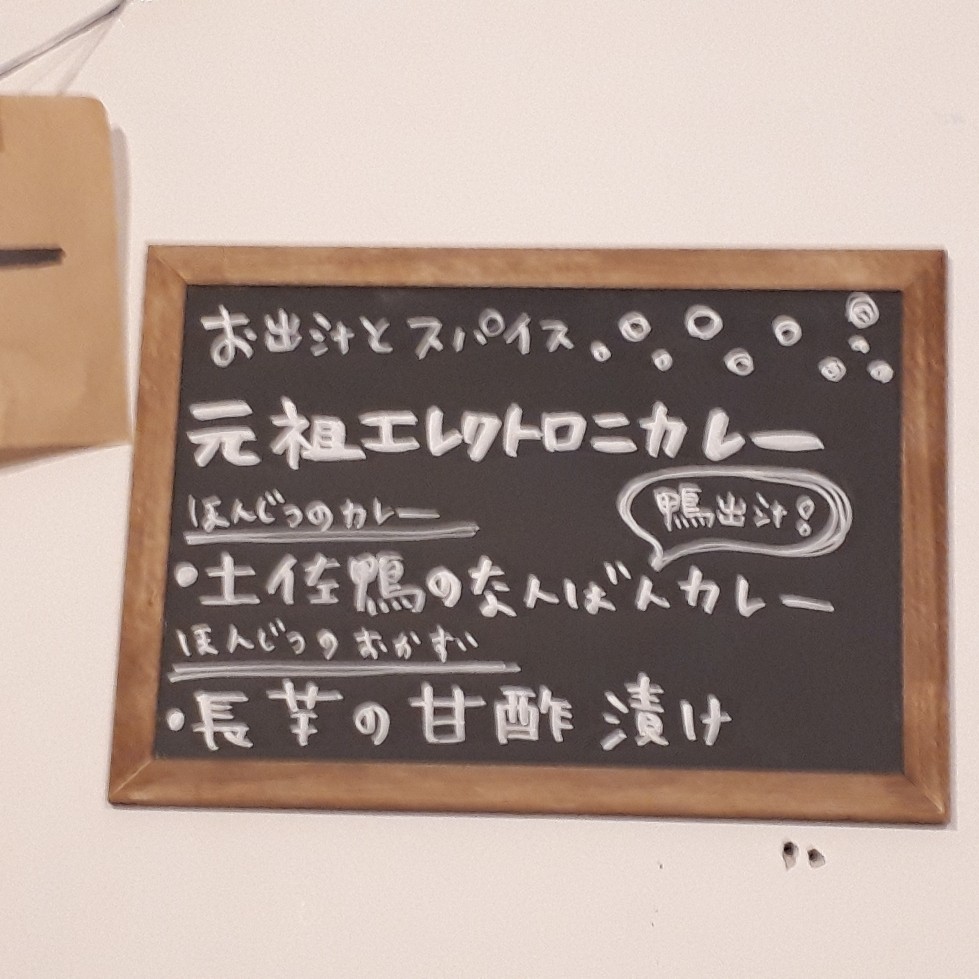 お出汁とスパイス
元祖エレクトロニカレー
ほんじつのカレー
鴨出汁!
・土佐鴨のなんばんカレー
ほんじつのおかず
・長芋の甘酢漬け